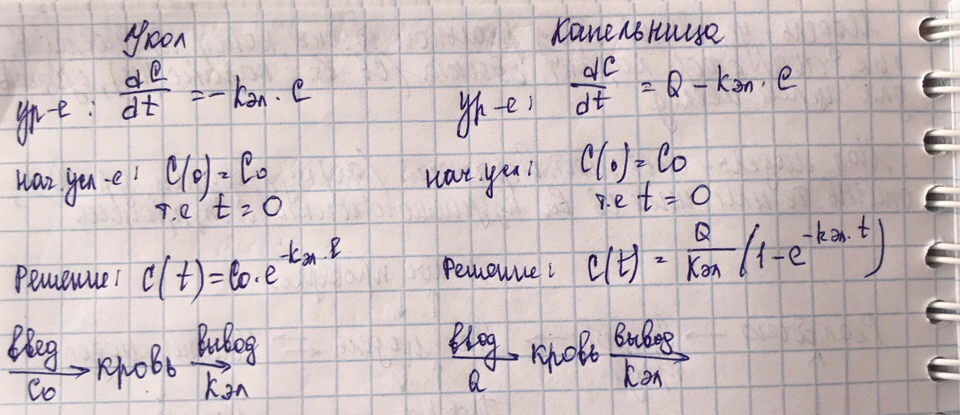 Укол
ур-е: dC/dt = - Kэл · C
нач. усл-е: C(0) = C0
т.е t = 0
Решение: C(t) = C0 · e^-Kэл·t
введ → кровь вывод →
C0 Kэл
Капельница
ур-е: dC/dt = Q - Kэл · C
нач. усл: C(0) = C0
т.е t = 0
Решение: C(t) = Q/Kэл (1 - e^-Kэл·t)
ввод → кровь вывод →
Q Kэл